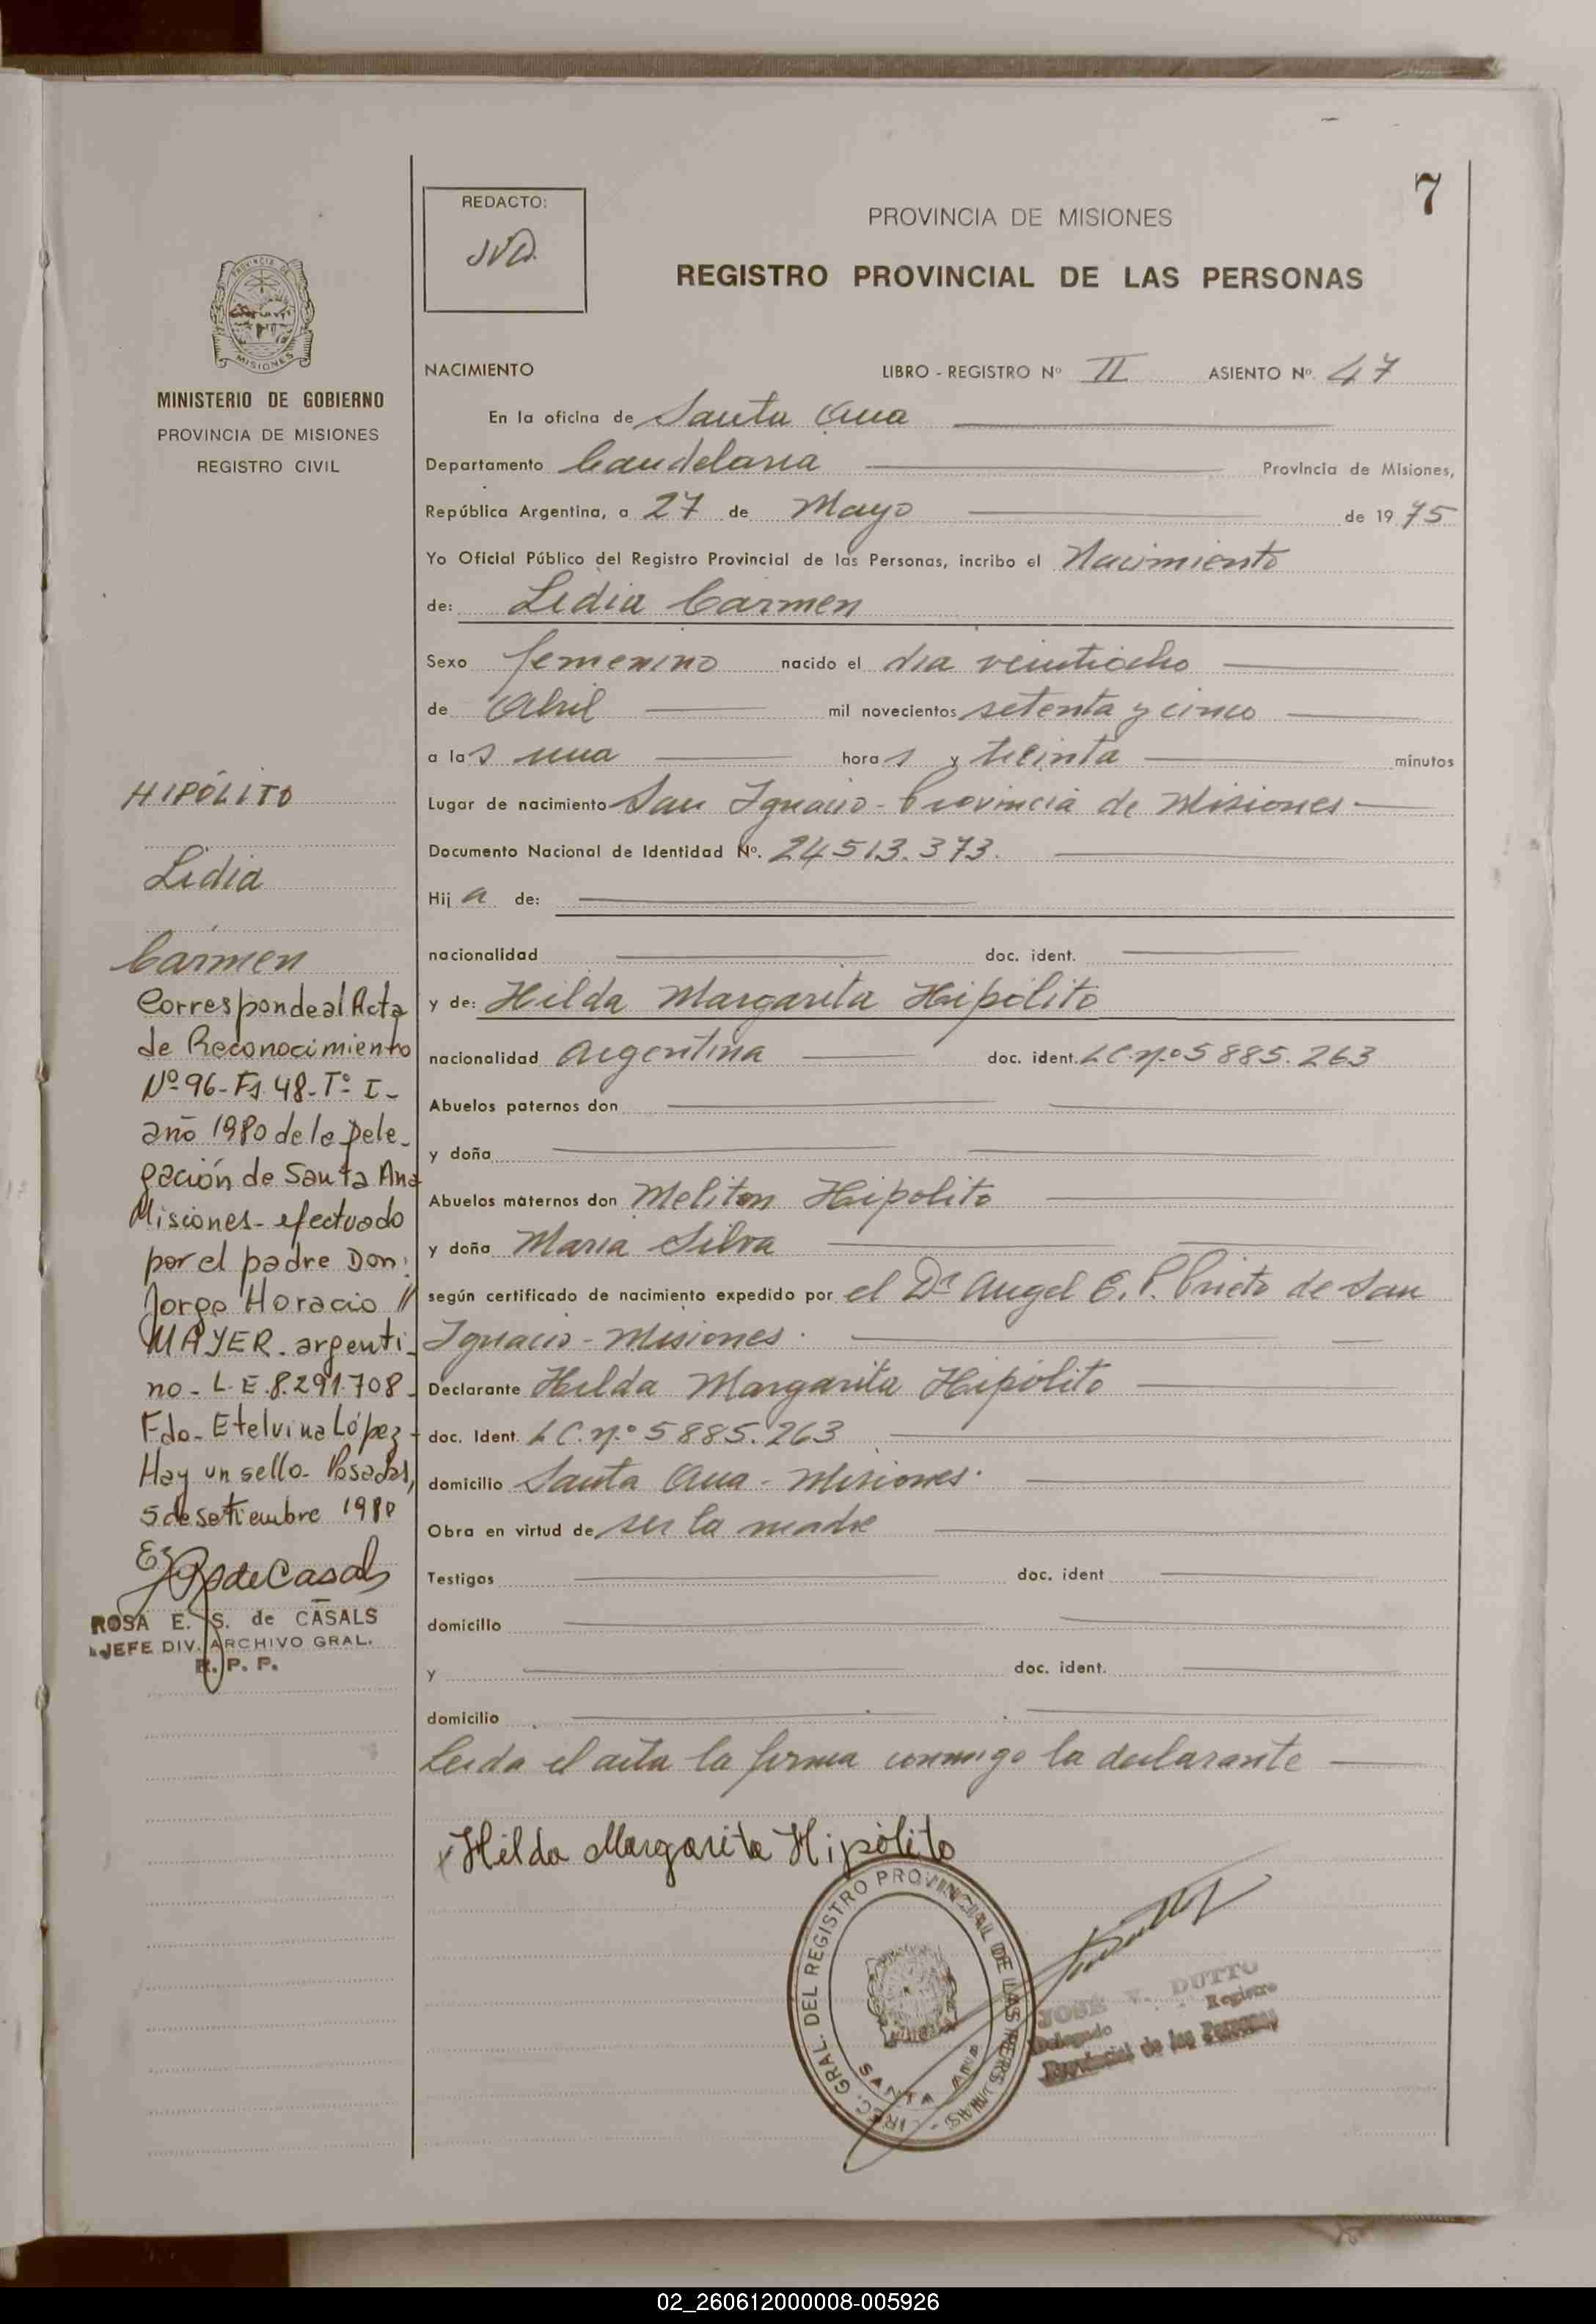 7
REDACTO:
JVD.
PROVINCIA DE MISIONES
REGISTRO PROVINCIAL DE LAS PERSONAS
PROVINCIA DE
MISIONES
MINISTERIO DE GOBIERNO
PROVINCIA DE MISIONES
REGISTRO CIVIL
NACIMIENTO LIBRO - REGISTRO Nº II ASIENTO Nº. 47
En la oficina de Santa Ana
Departamento Candelaria Provincia de Misiones,
República Argentina, a 27 de Mayo de 19 75
Yo Oficial Público del Registro Provincial de las Personas, incribo el Nacimiento
de: Lidia Carmen
Sexo femenino nacido el dia veintiocho
de Abril mil novecientos setenta y cinco
a las una horas y treinta minutos
Lugar de nacimiento San Ignacio - Provincia de Misiones
Documento Nacional de Identidad Nº. 24513.373.
Hija de:
nacionalidad doc. ident.
y de: Hilda Margarita Hipólito
nacionalidad Argentina doc. ident. L.C. nº 5885.263
Abuelos paternos don
y doña
Abuelos maternos don Meliton Hipolito
y doña Maria Silva
según certificado de nacimiento expedido por el Dr Angel E. P. Prieto de San
Ignacio - Misiones.
Declarante Hilda Margarita Hipólito
doc. Ident. L.C. nº 5885.263
domicilio Santa Ana - Misiones.
Obra en virtud de ser la madre
Testigos doc. ident
domicilio
y doc. ident.
domicilio
Leida el acta la firma conmigo la declarante
Hilda Margarita Hipólito
HIPÓLITO
Lidia
Carmen
Corresponde al Acta
de Reconocimiento
Nº 96 - Fs. 48 - Tº I -
año 1980 de la Dele-
gación de Santa Ana
Misiones - efectuado
por el padre Don:
Jorge Horacio //
MAYER - argenti-
no - L.E. 8.291.708 -
Fdo. Etelvina López -
Hay un sello - Posadas,
5 de setiembre 1980
de Casals
ROSA E. S. de CASALS
JEFE DIV. ARCHIVO GRAL.
R. P. P.
DIREC. GRAL. DEL REGISTRO PROVINCIAL DE LAS PERSONAS -
SANTA ANA
JOSÉ V. DUTTO
Delegado Registro
Provincial de las Personas
02_260612000008-005926